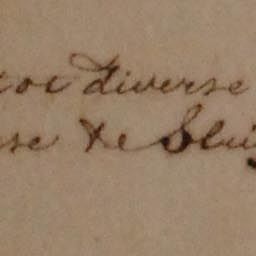 tot diverse
se de Slui